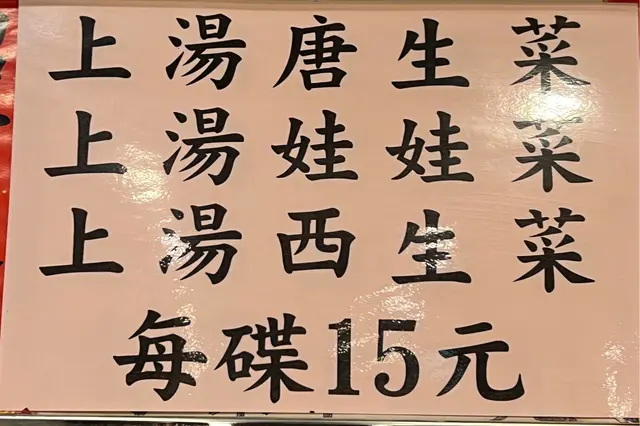 上湯唐生菜
上湯娃娃菜
上湯西生菜
每碟15元